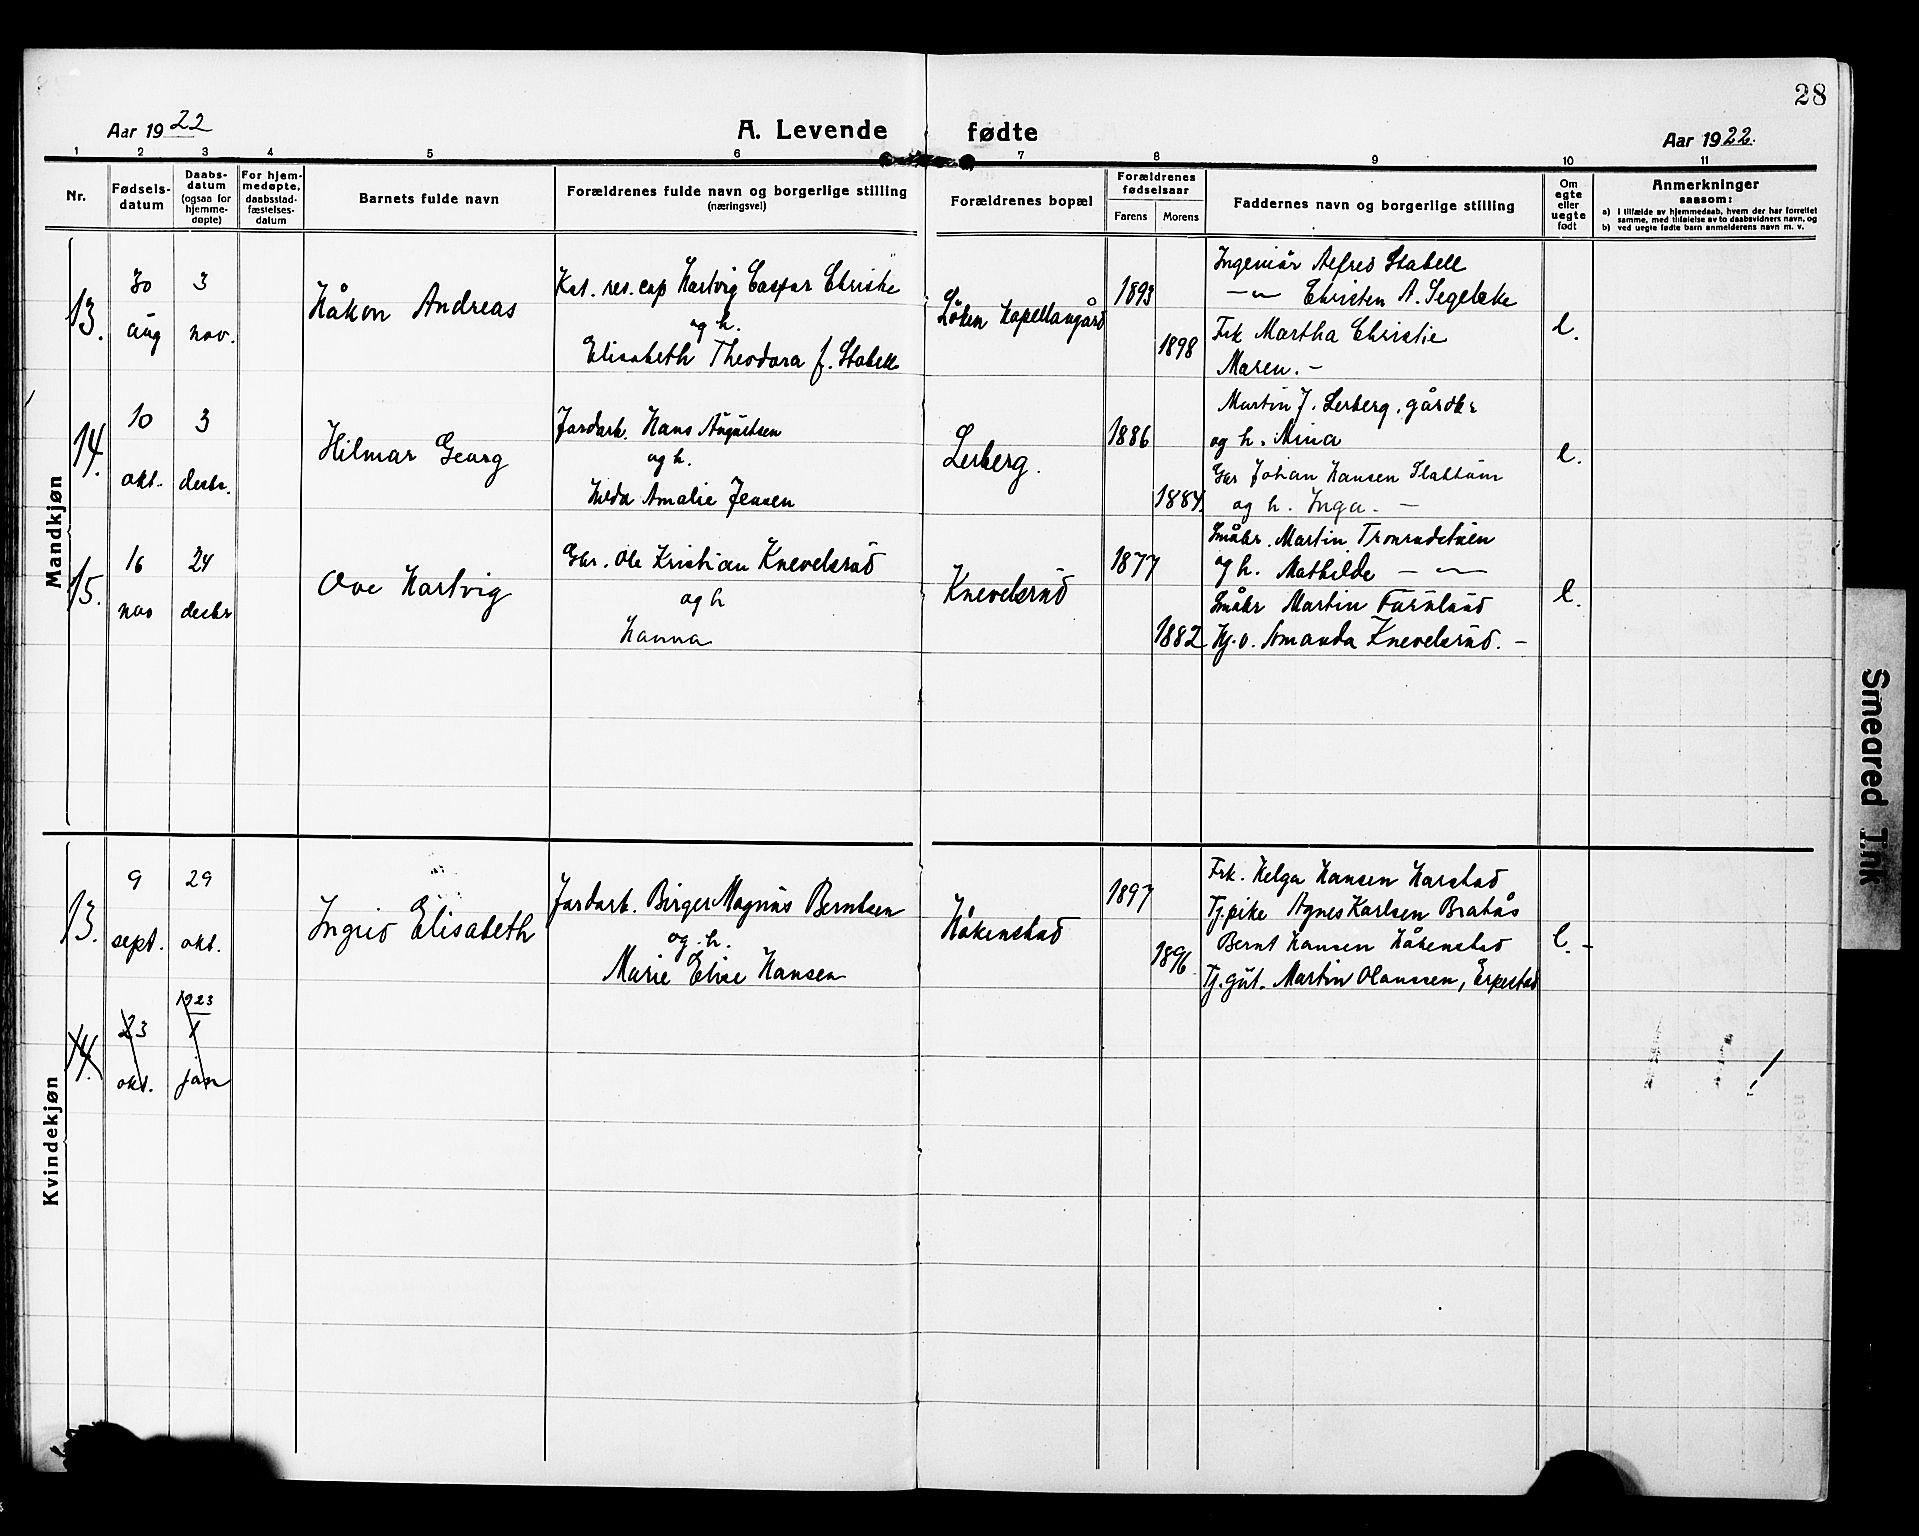 28
Aar 1922
A. Levende fødte
Aar 1922.
1 2 3 4 5 6 7 8 9 10 11
Nr.
Fødsels-
datum
Daabs-
datum
(ogsaa for
hjemme-
døpte)
For hjem-
medøpte,
daabsstad-
fæstelses-
datum
Barnets fulde navn
Forældrenes fulde navn og borgerlige stilling
(næringsvei)
Forældrenes bopæl
Forældrenes
fødselsaar
Farens Morens
Faddernes navn og borgerlige stilling
Om
egte
eller
uegte
født
Anmerkninger
saasom:
a) I tilfælde av hjemmedaab, hvem der har forrettet
samme, med tilføielse av to daabsvidners navn, og
b) ved uegte fødte barn anmelderens navn m. v.
Mandkjøn
13.
30
aug
3
nov.
Håkon Andreas
Kat. res. cap Hartvig Caspar Christie
og h.
Elisabeth Theodora f. Stabell
Löken Kapellangård
1893
1898
Ingeniör Alfred Stabell
— " — Christen A. Segelcke
Frk Martha Christie
Maren. —
e.
14.
10
okt.
3
desbr.
Hilmar Georg
Jordarb. Hans Augustsen
og h.
Hilda Amalie Jensen
Lerberg.
1886
1884.
Martin J. Lerberg, gårdbr
og h. Mina
Gbr Johan Hansen Slattum
og h. Inga. —
e.
15.
16
nov
24
desbr
Ove Hartvig
Gbr. Ole Kristian Knevelsrud
og h
Hanna
Knevelsrud
1877
1882
Småbr. Martin Tronrudstuen
og h. Mathilde — " —
Småbr Martin Furulund
Hj.v. Amanda Knevelsrud. —
e.
Kvindekjøn
13.
9
sept.
29
okt.
Ingrid Elisabeth
Jordarb. Birger Magnus Berntsen
og h.
Marie Elise Hansen
Håkenstad
1897
1896.
Frk. Helga Hansen Harstad
Tj.pike Agnes Karlsen Bratås
Bernt Hansen Håkenstad
Tj.gut. Martin Olaussen, Erpestad
e. -
14.
23
okt.
1923
1
jan
Smeared Ink